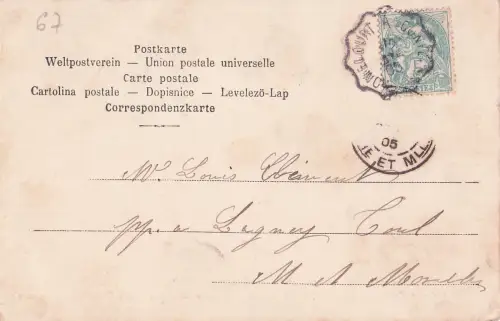 67
Postkarte
Weltpostverein — Union postale universelle
Carte postale
Cartolina postale — Dopisnice — Levelező-Lap
Correspondenzkarte
05
ET
Mr. Louis Clément
pp. a Lagney Toul
M et Moselle